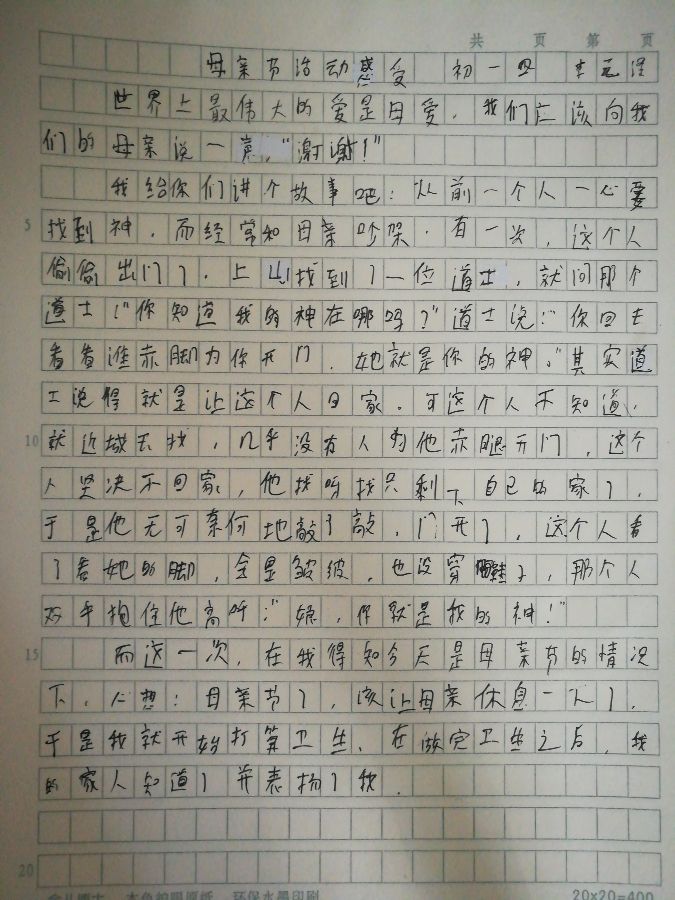 共 页 第 页
母亲节活动感受 初一四
世界上最伟大的爱是母爱,我们应该向我
们的母亲说一意,“谢谢!”
我给你们讲个故事吧:从前一个人一心要
5 找到神,而经常和母亲吵架.有一次,这个人
偷偷出门了,上山找到了一位道士,就问那个
道士:“你知道我的神在哪吗?”道士说:“你回去
看看谁赤脚为你开门,她就是你的神。”其实道
士说得就是让这个人回家.可这个人不知道,
10 就近城去找,几乎没有人为他赤腿开门,这个
人坚决不回家,他找呀找只剩下自己的家了,
于是他无可奈何地敲了敲,门开了,这个人看
了看她的脚,全是皱皱,也没穿鞋子,那个人
双手抱住他高呼:“娘,你就是我的神!”
15 而这一次,在我得知今天是母亲节的情况
下,心想:母亲节了,该让母亲休息一下了,
于是我就开始打算卫生,在做完卫生之后,我
的家人知道了并表扬了我.
20
本色护眼原纸 环保水墨印刷 20×20=400